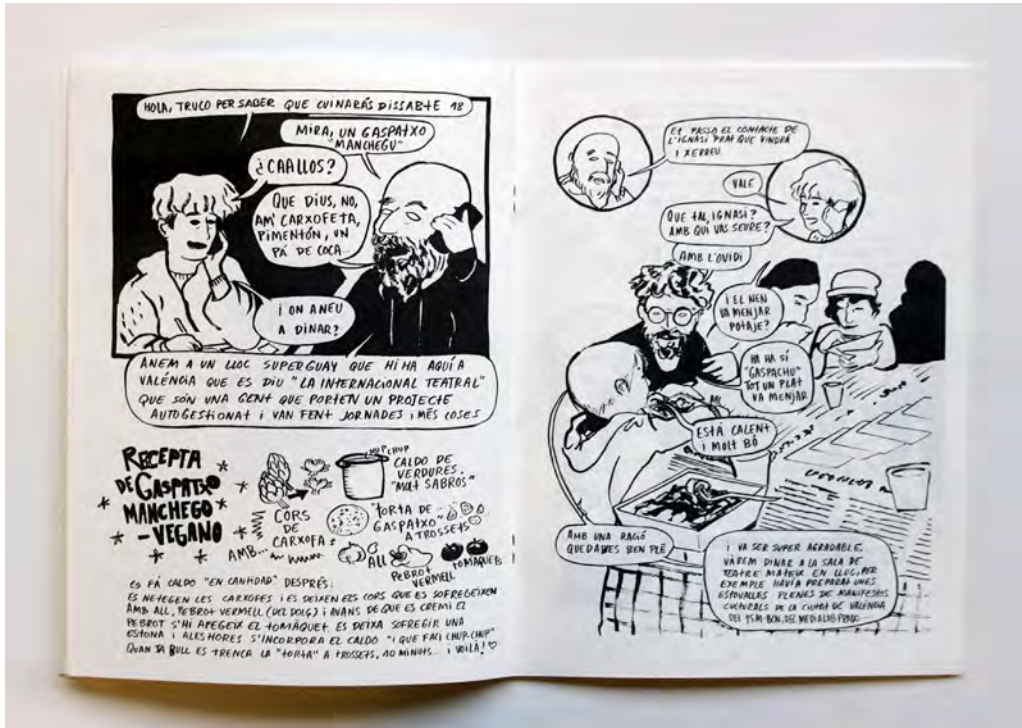 HOLA, TRUCO PER SABER QUE CUINARÀS DISSABTE 18
MIRA, UN GASPATXO
"MANCHEGU"
¿CAALLOS?
QUE DIUS, NO,
AM' CARXOFETA,
PIMENTÓN, UN
PÀ DE COCA...
I ON ANEU
A DINAR?
ANEM A UN LLOC SUPERGUAY QUE HI HA AQUÍ A
VALÈNCIA QUE ES DIU "LA INTERNACIONAL TEATRAL"
QUE SÓN UNA GENT QUE PORTEN UN PROJECTE
AUTOGESTIONAT I VAN FENT JORNADES I MÉS COSES
RECEPTA
DE GASPATXO
MANCHEGO
- VEGANO
AMB...
CORS
DE
CARXOFA
CHUP CHUP
CALDO DE
VERDURES.
"MOLT SABROS"
"TORTA DE
GASPATXO"
A TROSSETS
ALL
PEBROT
VERMELL
TOMAQUETS
ES FÀ CALDO "EN CANTIDAD" DESPRÉS:
ES NETEGEN LES CARXOFES I ES DEIXEN ELS CORS QUE ES SOFREGEIXEN
AMB ALL, PEBROT VERMELL (DEL DOLÇ) I AVANS DE QUE ES CREMI EL
PEBROT S'HI AFEGEIX EL TOMÀQUET. ES DEIXA SOFREGIR UNA
ESTONA I ALESHORES S'INCORPORA EL CALDO "I QUE FACI CHUP-CHUP"
QUAN JA BULL ES TRENCA LA "TORTA" A TROSSETS, 10 MINUTS... I VOILÀ!
ET PASSO EL CONTACTE DE
L'IGNASI PRAT QUE VINDRÀ
I XERREU
VALE
QUE TAL, IGNASI?
AMB QUI VAS SEURE?
AMB L'OVIDI
I EL NEN
VA MENJAR
POTAJE?
HA HA SÍ
"GASPACHU"
TOT UN PLAT
VA MENJAR
ESTÀ CALENT
I MOLT BÓ
AMB UNA RACIÓ
QUEDABES BEN PLÉ
I VA SER SUPER AGRADABLE,
VÀREM DINAR A LA SALA DE
TEATRE MATEIX EN LLOC, PER
EXEMPLE HAVÍA PREPARAT UNES
ESTOVALLES PLENES DE MANIFESTOS
CULTURALS DE LA CIUTAT DE VALÈNCIA
DEL 15M-BCN, DEL MEDIALAB PRADO